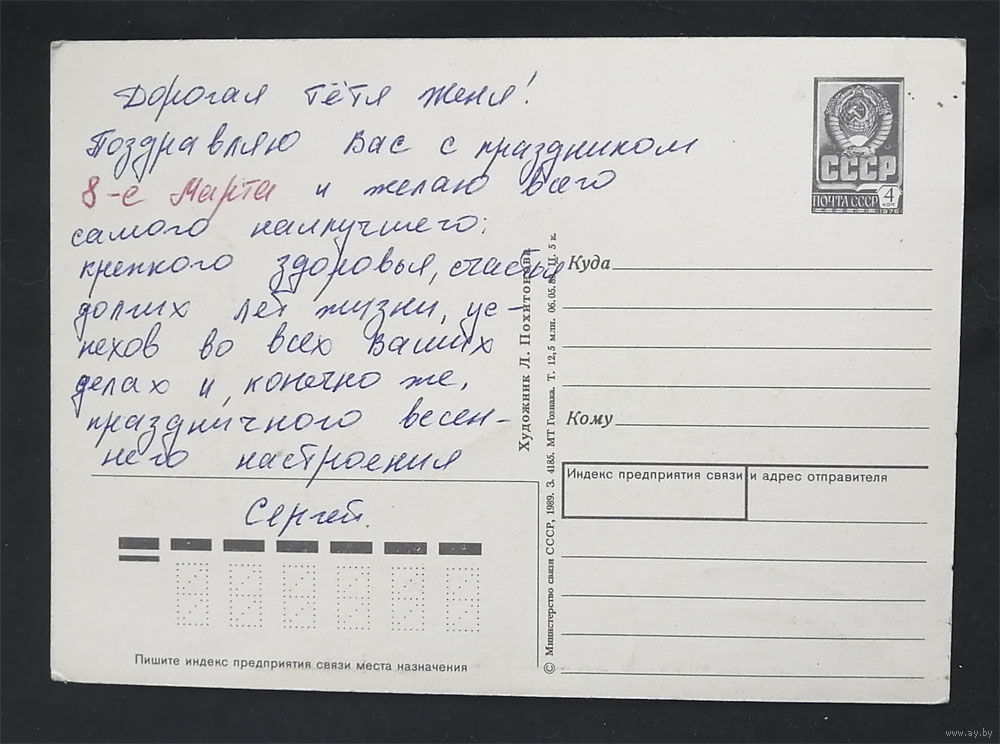 Дорогая тётя Женя!
Поздравляю Вас с праздником
8-е Марта и желаю всего
самого наилучшего:
крепкого здоровья, счастья
долгих лет жизни, ус-
пехов во всех Ваших
делах и, конечно же,
праздничного весен-
него настроения
Сергей.
Пишите индекс предприятия связи места назначения
Художник Л. Похитонова
© Министерство связи СССР, 1989. З. 4185. МТ Гознака. Т. 12,5 млн. 06.05.89. Ц. 5 к.
СССР
ПОЧТА СССР 4 коп
1976
Куда
Кому
Индекс предприятия связи и адрес отправителя
www.ay.by